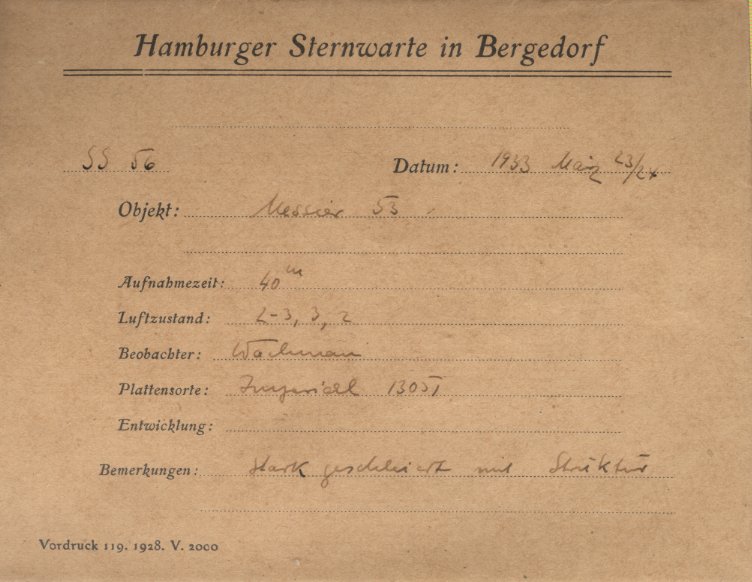 Hamburger Sternwarte in Bergedorf
SS 56 Datum: 1933 März 23/24
Objekt: Messier 53
Aufnahmezeit: 40m
Luftzustand: 2-3, 3, 2
Beobachter: Wachmann
Plattensorte: Imperial
Entwicklung:
Bemerkungen: stark geschleiert mit Struktur
Vordruck 119. 1928. V. 2000